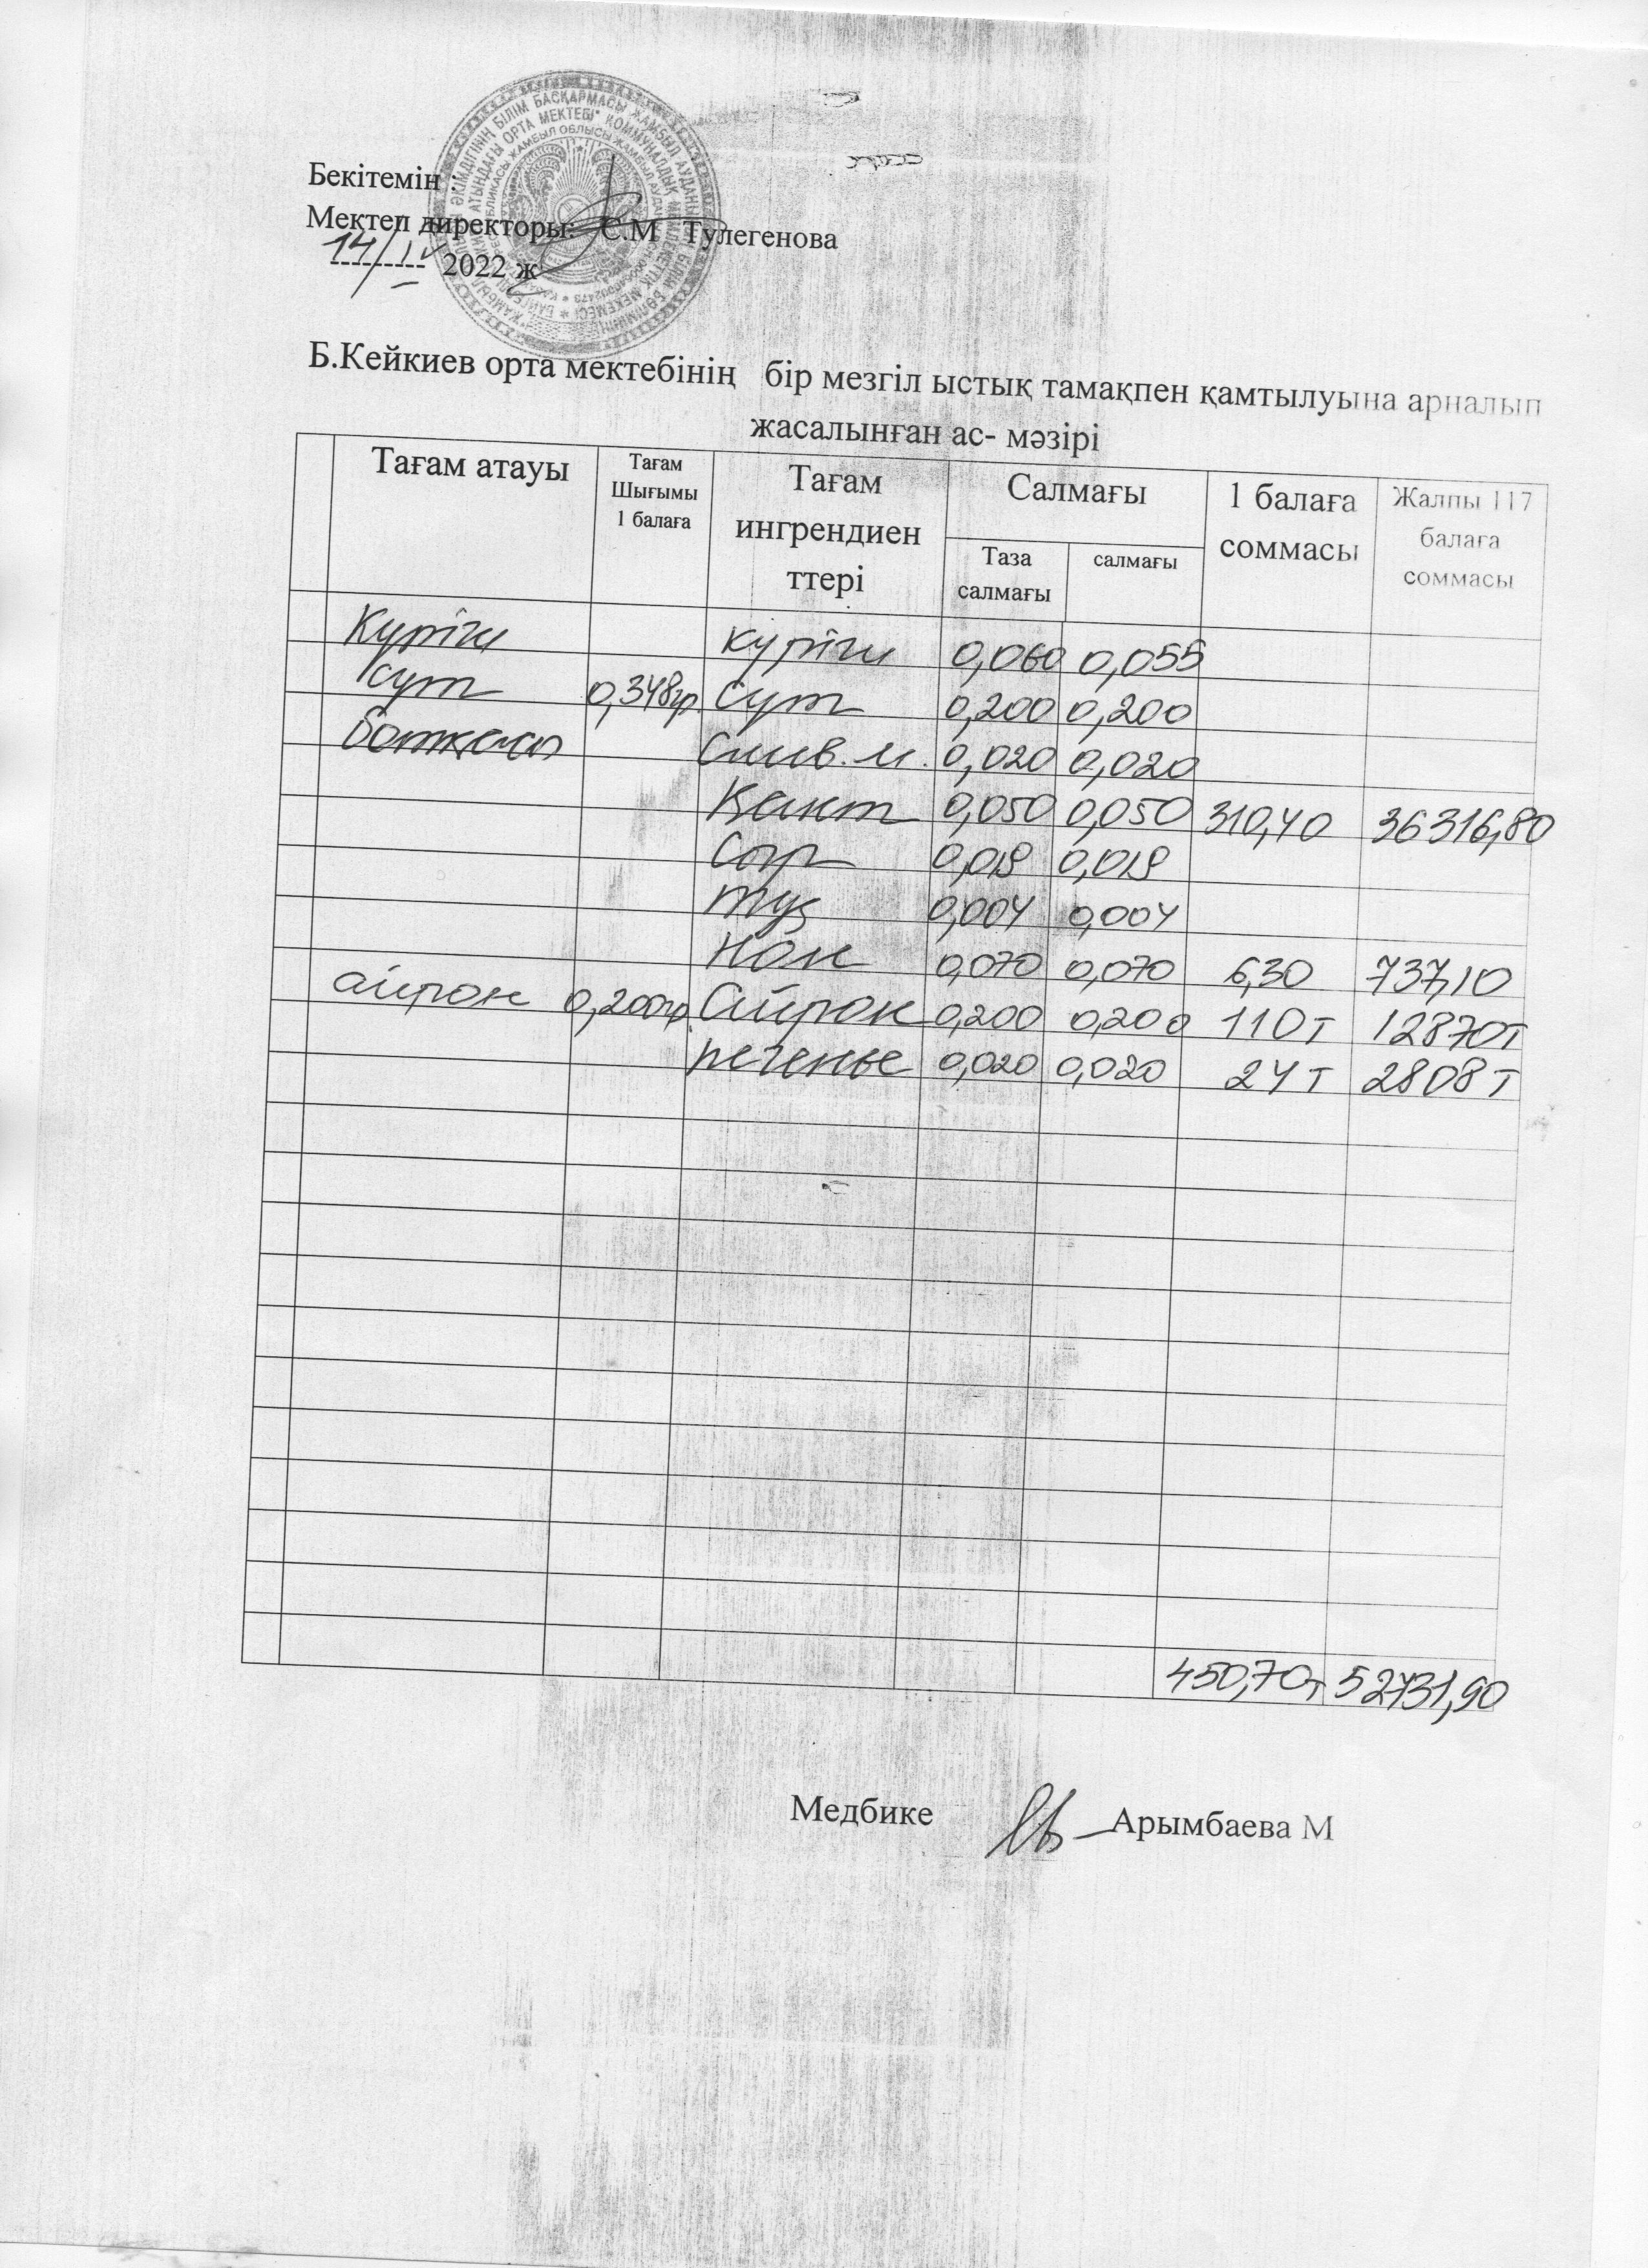 Бекітемін :
Мектеп директоры: С.М Тулегенова
14/IV 2022 ж
Б.Кейкиев орта мектебінің бір мезгіл ыстық тамақпен қамтылуына арналып
жасалынған ас- мәзірі
Тағам атауы
Тағам
Шығымы
1 балаға
Тағам
ингрендиен
ттері
Салмағы
Таза
салмағы
салмағы
1 балаға
соммасы
Жалпы 117
балаға
соммасы
Күріш күріш 0,060 0,055
сүт 0,348гр. сүт 0,200 0,200
ботқасы слив.м. 0,020 0,020
Қант 0,050 0,050 310,40 36316,80
Сыр 0,019 0,019
тұз 0,004 0,004
Нан 0,070 0,070 6,30 737,10
айран 0,200гр Айран 0,200 0,200 110т 12870т
печенье 0,020 0,020 24т 2808т
450,70т 52731,90
Медбике Арымбаева М